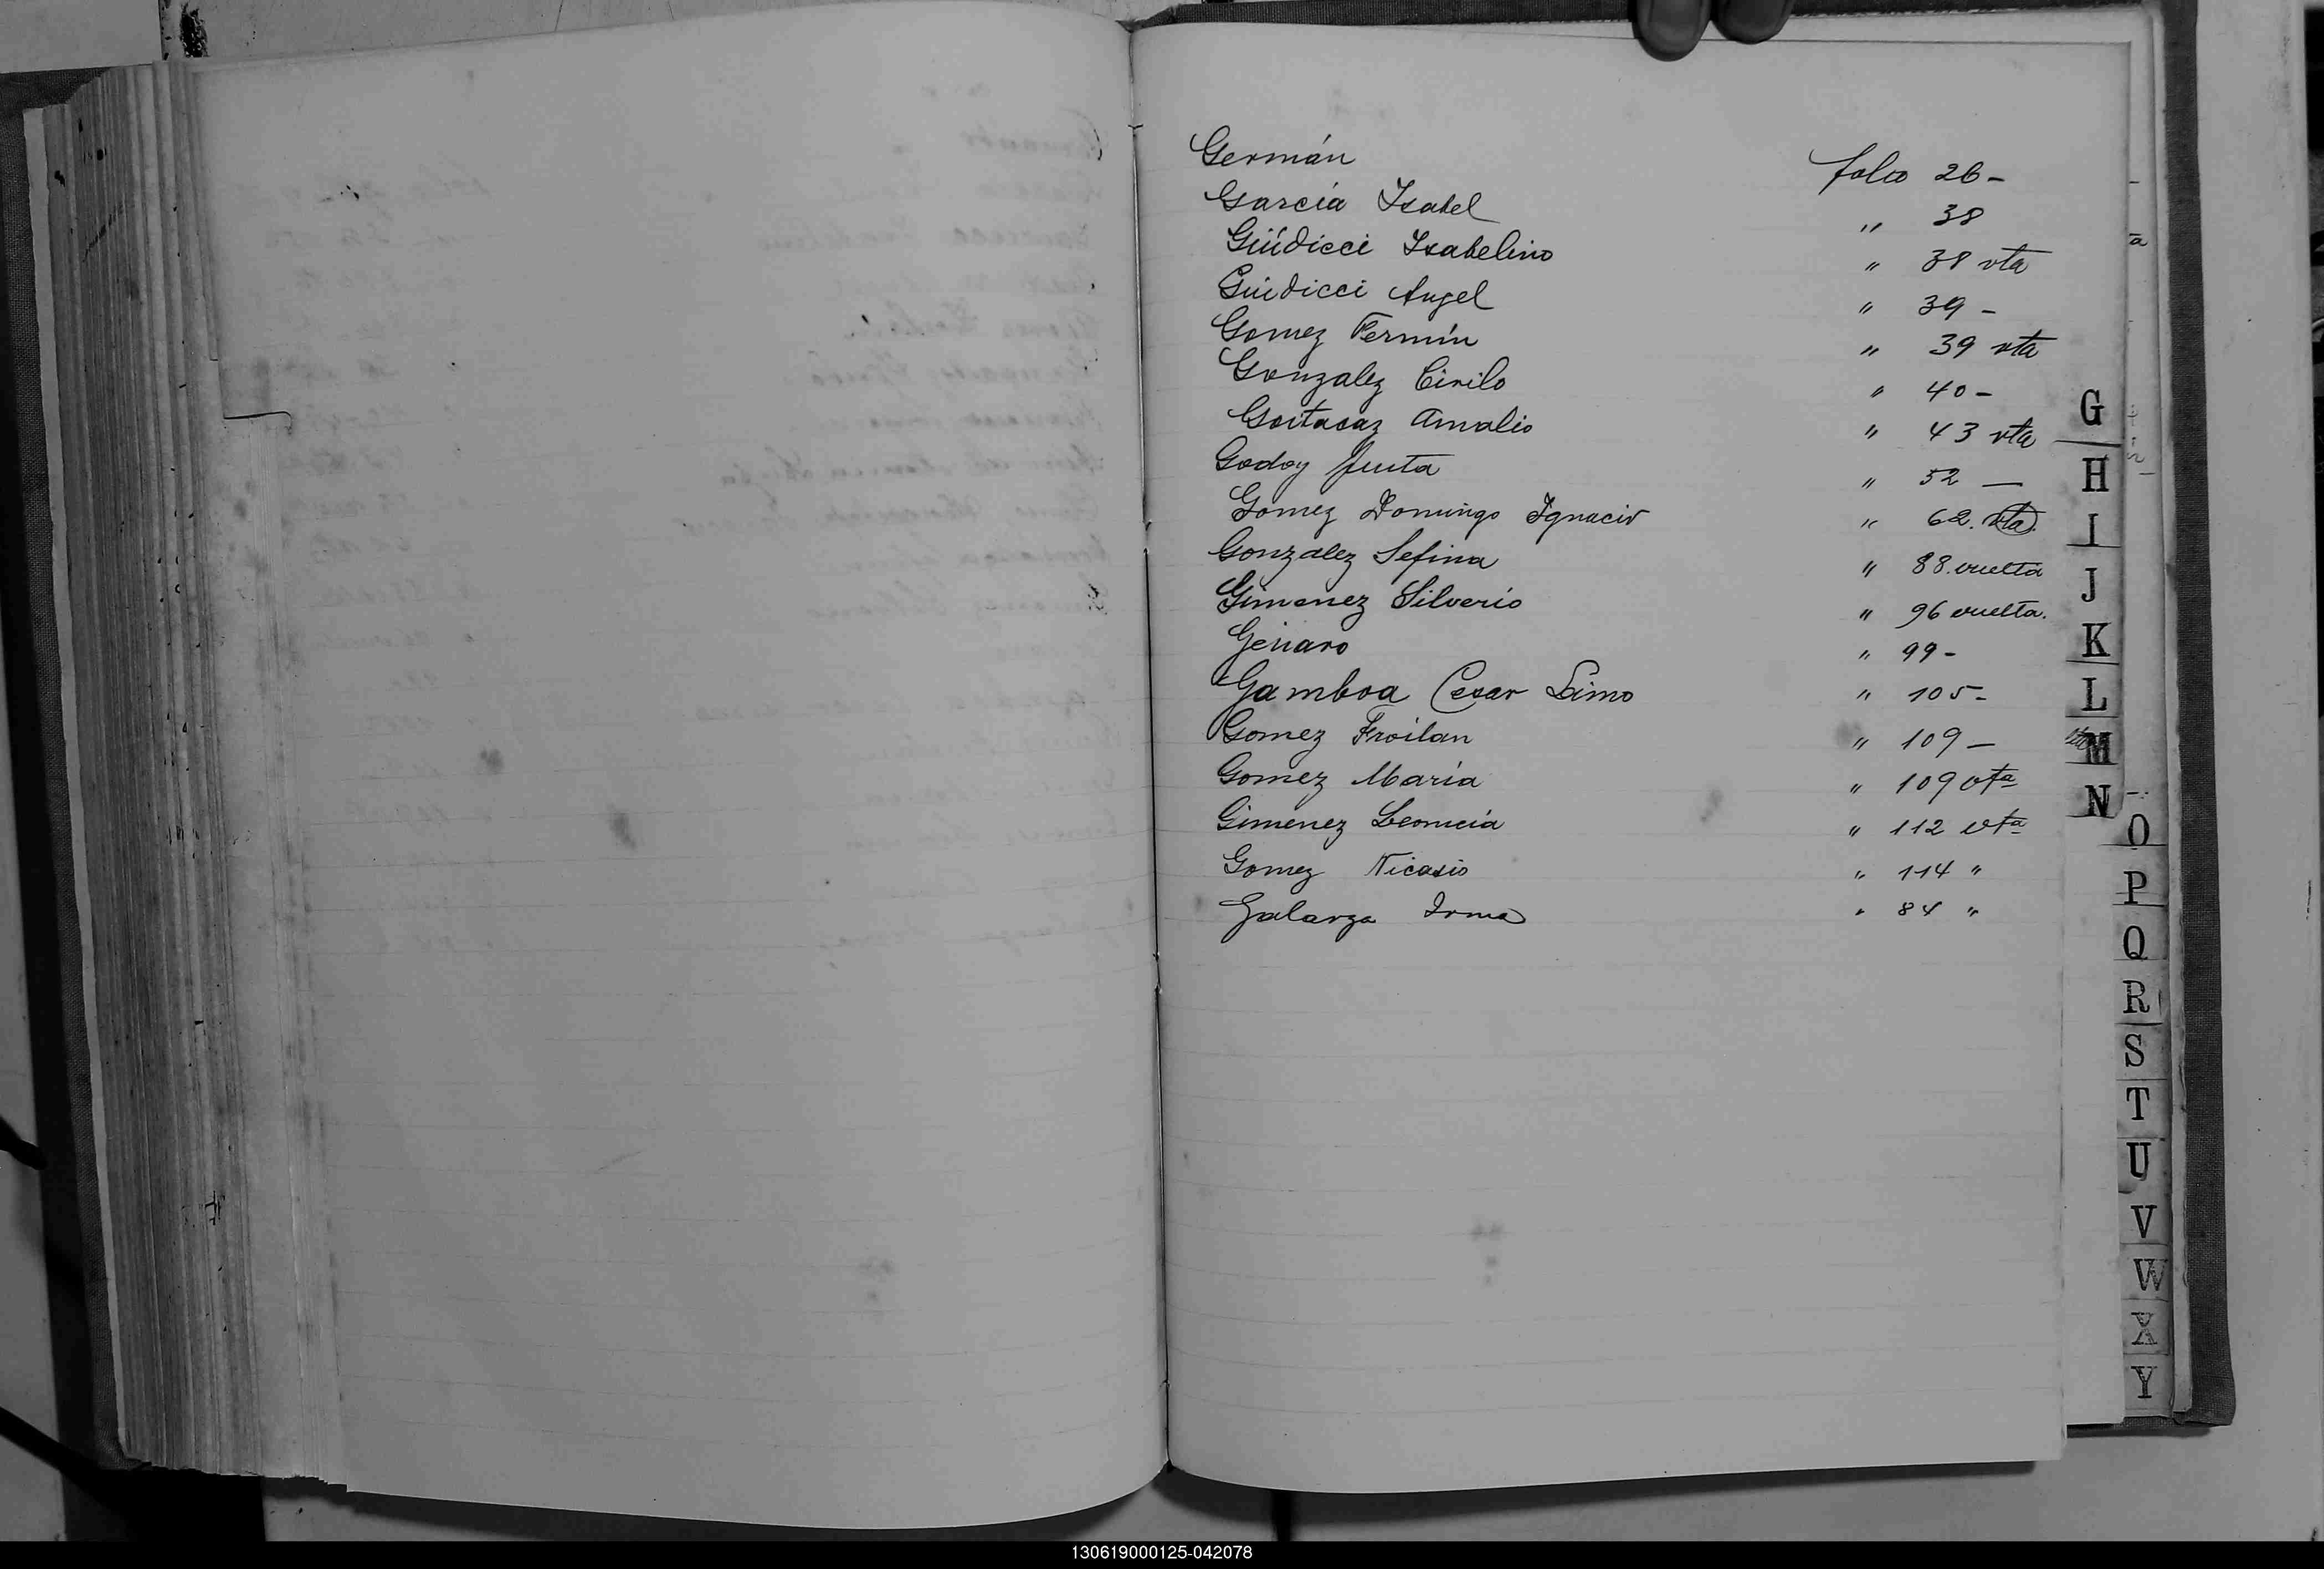 Germán folio 26 -
García Isabel " 38
Güidicci Isabelino " 38 vta
Güidicci Angel " 39 -
Gomez Fermín " 39 vta
Gonzalez Cirilo " 40 -
Goitasaz Amalio " 43 vta
Godoy Justa " 52 —
Gomez Domingo Ignacio " 62. vta.
Gonzalez Sefina " 88. vuelta
Gimenez Silverio " 96 vuelta.
Genaro " 99 -
Gamboa Cesar Limo " 105 -
Gomez Froilan " 109 —
Gomez María " 109 vta
Gimenez Leoncia " 112 vta
Gomez Nicasio " 114 "
Galarza Irma " 84 "
G
H
I
J
K
L
M
N
O
P
Q
R
S
T
U
V
W
X
Y
130619000125-042078